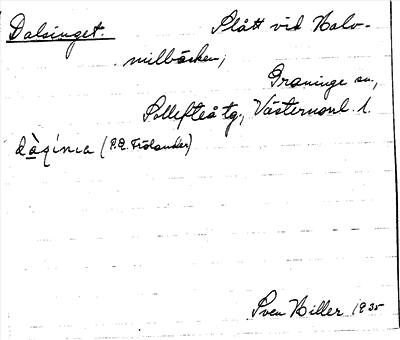 Dalsinget. Slått vid Halv-
milbäcken,
Graninge sn.,
Sollefteå tg., Västernorrl. l.
(P.E. Frölander)
Sven Hiller 1935